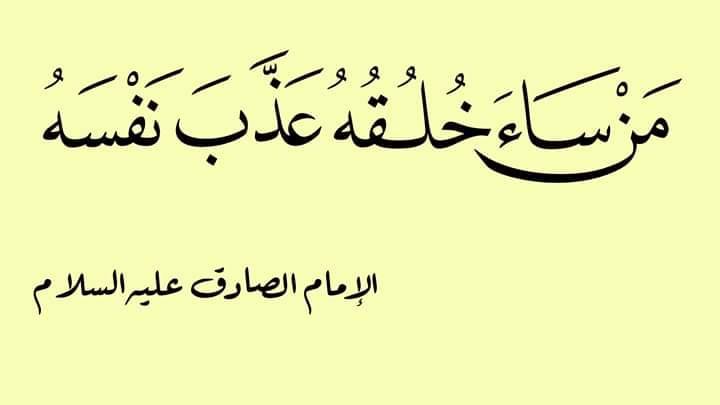 مَنْ سَاءَ خُلُقُهُ عَذَّبَ نَفْسَهُ
الإمام الصادق عليه السلام